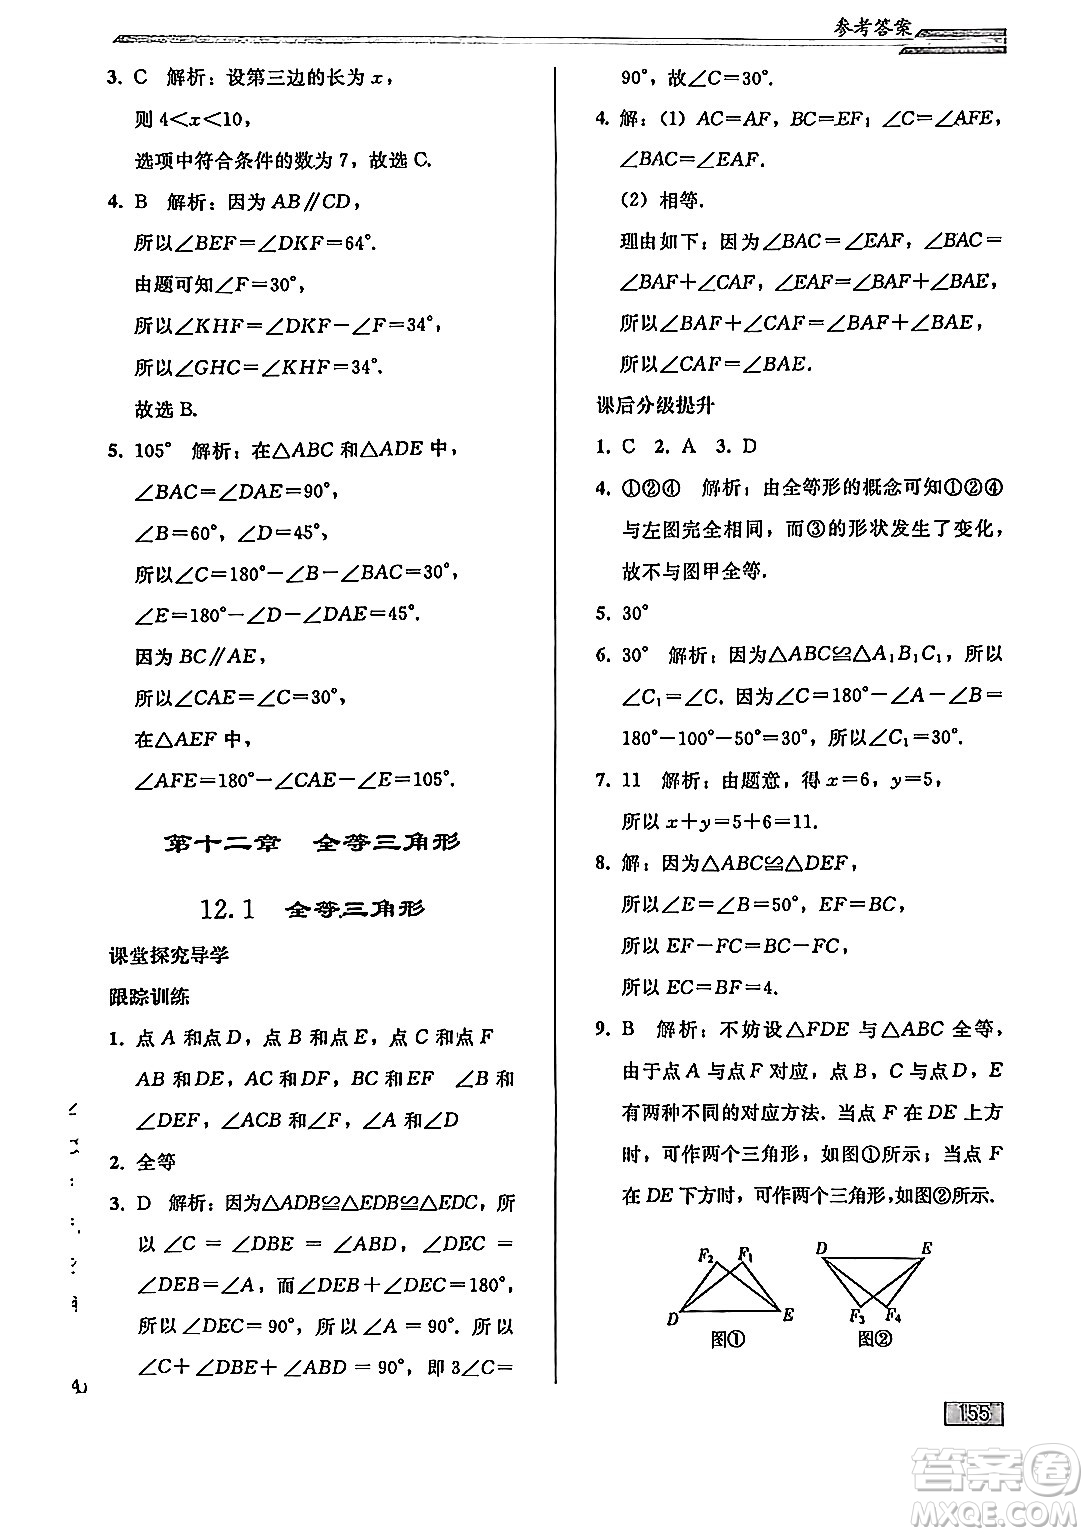 参考答案
3. C 解析：设第三边的长为 x，
则 4＜x＜10，
选项中符合条件的数为 7，故选 C.
4. B 解析：因为 AB∥CD，
所以∠BEF＝∠DKF＝64°.
由题可知∠F＝30°，
所以∠KHF＝∠DKF－∠F＝34°，
所以∠GHC＝∠KHF＝34°.
故选 B.
5. 105° 解析：在△ABC 和△ADE 中，
∠BAC＝∠DAE＝90°，
∠B＝60°，∠D＝45°，
所以∠C＝180°－∠B－∠BAC＝30°，
∠E＝180°－∠D－∠DAE＝45°.
因为 BC∥AE，
所以∠CAE＝∠C＝30°，
在△AEF 中，
∠AFE＝180°－∠CAE－∠E＝105°.
第十二章 全等三角形
12.1 全等三角形
课堂探究导学
跟踪训练
1. 点 A 和点 D，点 B 和点 E，点 C 和点 F
AB 和 DE，AC 和 DF，BC 和 EF ∠B 和
∠DEF，∠ACB 和∠F，∠A 和∠D
2. 全等
3. D 解析：因为△ADB≌△EDB≌△EDC，所
以 ∠C ＝ ∠DBE ＝ ∠ABD，∠DEC ＝
∠DEB＝∠A，而∠DEB＋∠DEC＝180°，
所以∠DEC＝90°，所以∠A＝90°. 所以
∠C＋∠DBE＋∠ABD＝90°，即 3∠C＝
90°，故∠C＝30°.
4. 解：(1) AC＝AF，BC＝EF；∠C＝∠AFE，
∠BAC＝∠EAF.
(2) 相等.
理由如下：因为∠BAC＝∠EAF，∠BAC＝
∠BAF＋∠CAF，∠EAF＝∠BAF＋∠BAE，
所以∠BAF＋∠CAF＝∠BAF＋∠BAE，
所以∠CAF＝∠BAE.
课后分级提升
1. C 2. A 3. D
4. ①②④ 解析：由全等形的概念可知①②④
与左图完全相同，而③的形状发生了变化，
故不与图甲全等.
5. 30°
6. 30° 解析：因为△ABC≌△A₁B₁C₁，所以
∠C₁＝∠C. 因为∠C＝180°－∠A－∠B＝
180°－100°－50°＝30°，所以∠C₁＝30°.
7. 11 解析：由题意，得 x＝6，y＝5，
所以 x＋y＝5＋6＝11.
8. 解：因为△ABC≌△DEF，
所以∠E＝∠B＝50°，EF＝BC，
所以 EF－FC＝BC－FC，
所以 EC＝BF＝4.
9. B 解析：不妨设△FDE 与△ABC 全等，
由于点 A 与点 F 对应，点 B、C 与点 D、E
有两种不同的对应方法. 当点 F 在 DE 上方
时，可作两个三角形，如图①所示；当点 F
在 DE 下方时，可作两个三角形，如图②所示.
F₂ F₁
D E
图①
D E
F₃ F₄
图②
155
答案圈
MXQE.COM